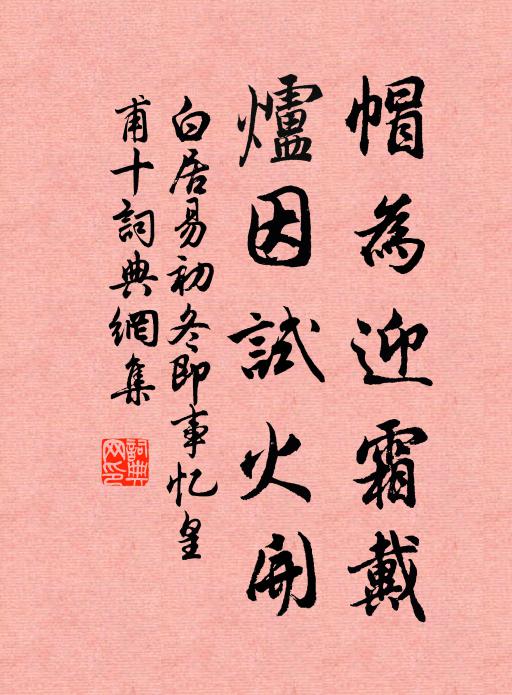 帽為迎霜戴
爐因試火開
白居易初冬即事忆皇
甫十詞典網集
詞典网印